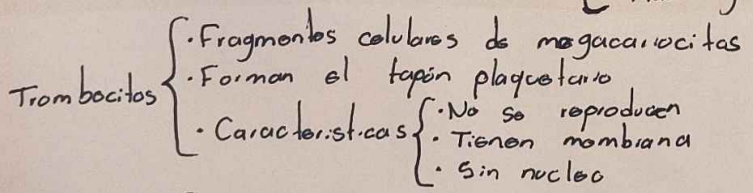 · Fragmentos celulares de megacariocitos
Trombocitos · Forman el tapón plaquetario
· Características · No se reproducen
· Tienen membrana
· Sin nucleo